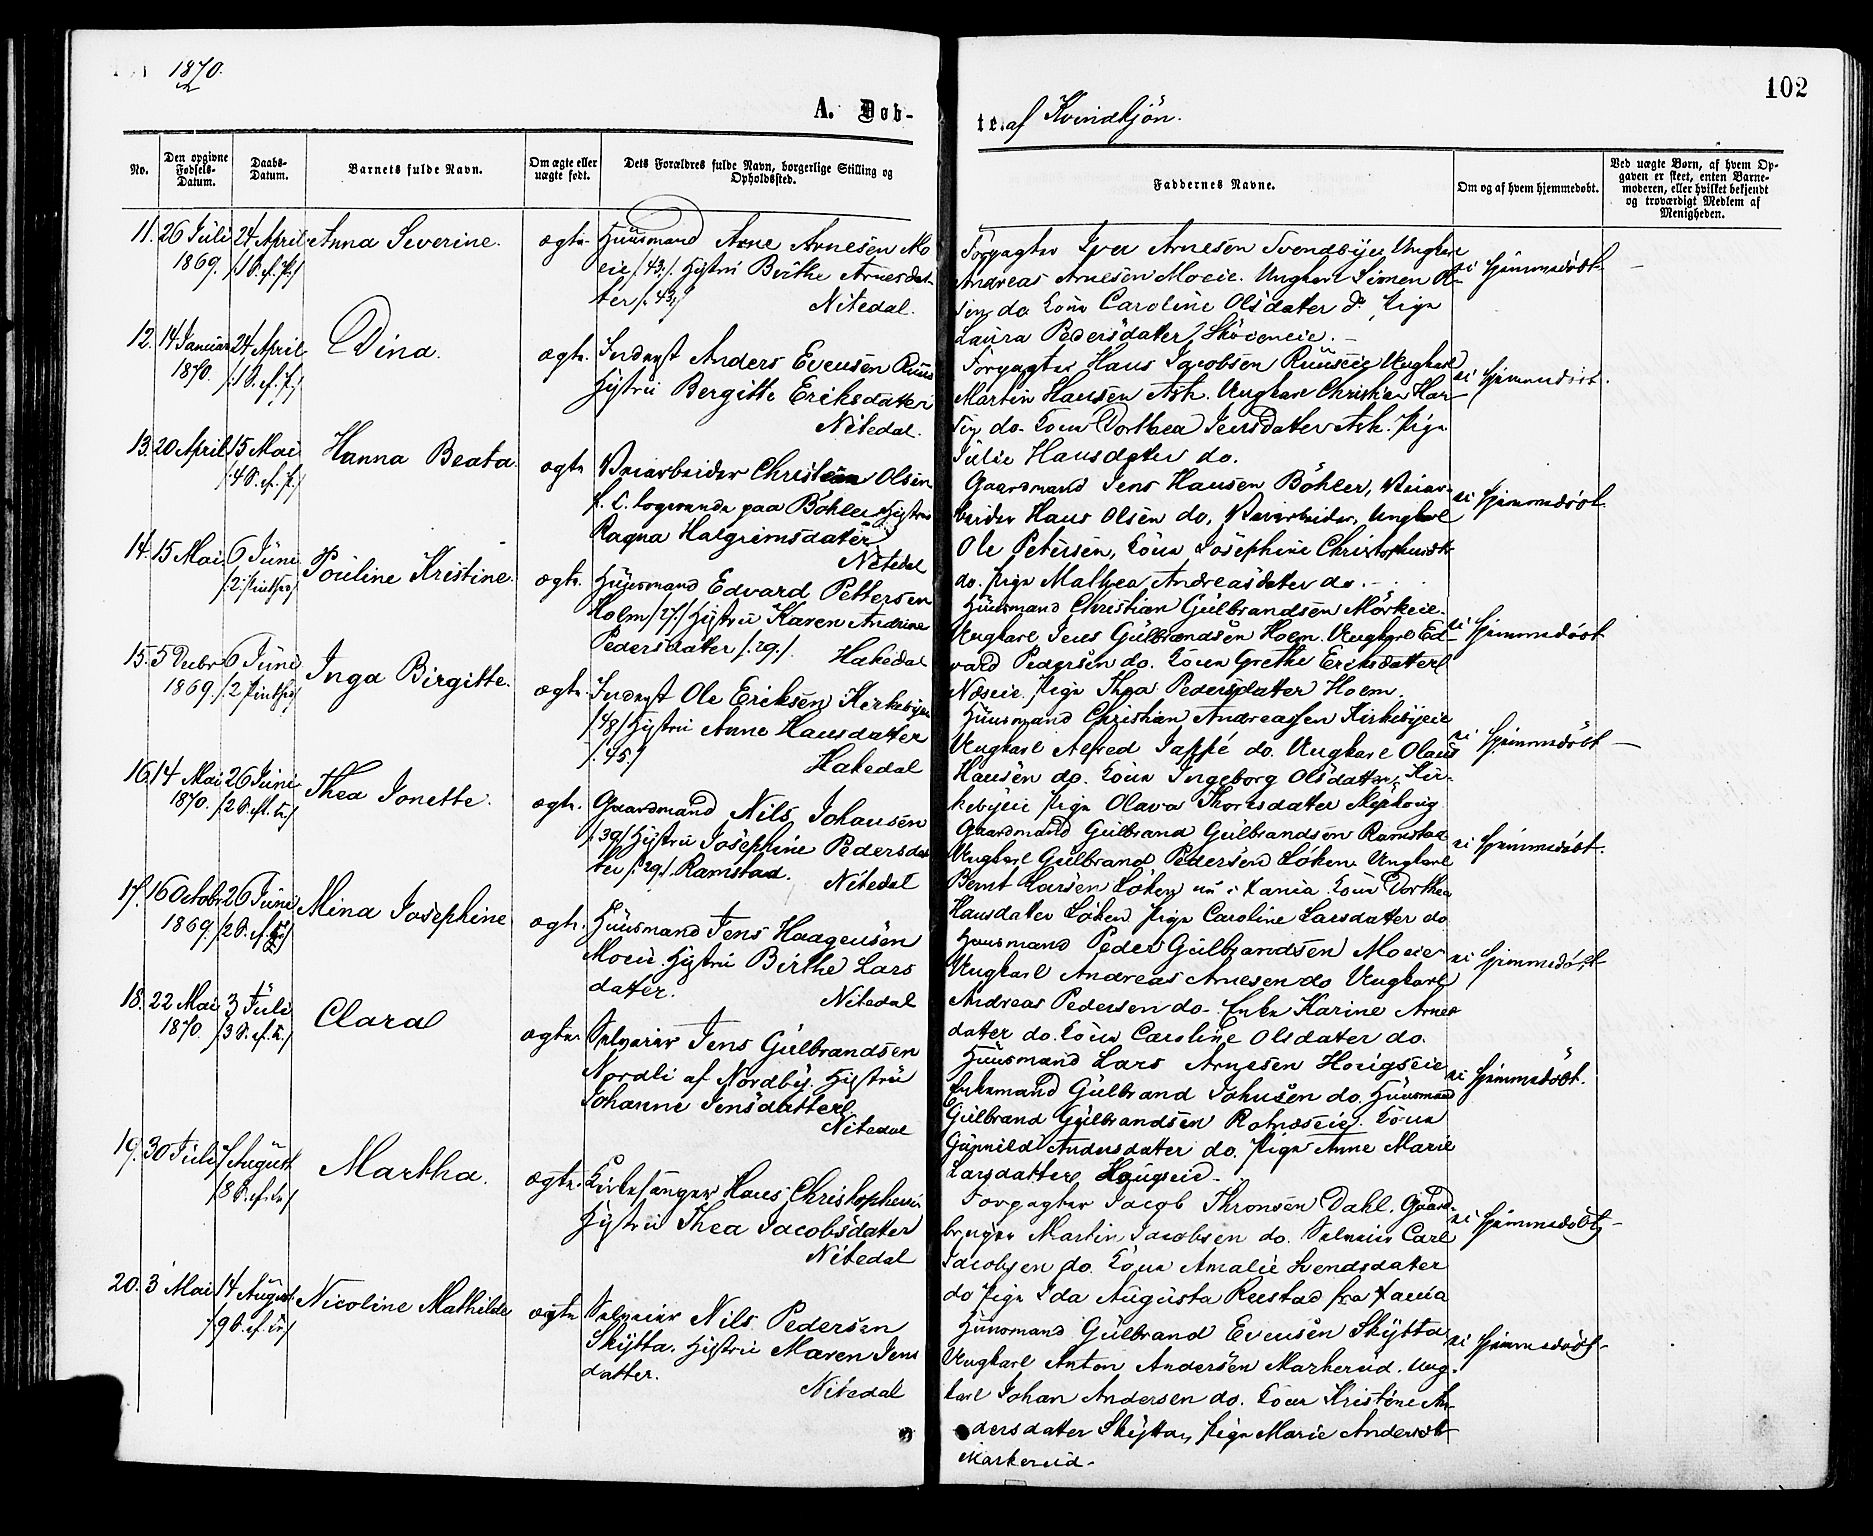 1870.
102
A. Døb-
te. af Kvindkjön.
No.
Den opgivne Fødsels-Datum.
Daabs-Datum.
Barnets fulde Navn.
Om ægte eller uægte født.
Dets Forældres fulde Navn, borgerlige Stilling og Opholdssted.
Faddernes Navne.
Om og af hvem hjemmedøbt.
Ved uægte Børn, af hvem Opgaven er skeet, enten Barnemoderen, eller hvilket bekjendt og troværdigt Medlem af Menigheden.
11. 26 Juli 1869. 24 April /1 S. ef. P./ Anna Severine. ægte.
Huusmand Arne Arnesen Mo
eie /43/. Hustru Birthe Arnesdat-
ter /:43/ Nitedal.
Forpagter Iver Arnesen Svendbye Ungkarl
Andreas Arnesen Moeie. Ungkarl Simen Ol-
sen do. Kone Caroline Olsdater do. Pige
Laura Pedersdater Skøieneie.
ei hjemmedøbt.
12. 14 Januar 1870. 24 April /1 S. ef. P./ Dina. ægte.
Inderst Anders Evensen Ruus
Hustru Bergitte Eriksdatter
Nitedal.
Forpagter Hans Jacobsen Ruuseie Ungkarl
Martin Hansen Ask. Ungkarl Christian Han-
sen do. Kone Dorthea Jensdater Ask. Pige
Julie Hansdater do.
ei hjemmedøbt.
13. 20 April 15 Mai /4 S. ef. P./ Hanna Beata. ægte
Veiarbeider Christian Olsen
f. C. logerende paa Böhler Hustru
Ragna Halgrimsdater
Nitedal
Gaardmand Jens Hansen Böhler, Veiar-
beider Hans Olsen do, Veiarbeider, Ungkarl
Ole Petersen, Kone Josephine Christophersdt.
do. Pige Mathea Andreasdater do.
ei hjemmedøbt
14. 15 Mai 6 Juni /:2 Pintsed/ Pouline Kristine. ægte.
Huusmand Edvard Pettersen
Holm /27/ Hustru Karen Andrine
Pedersdater /:29./ Hakedal
Huusmand Christian Gulbrandsen Mörkeie.
Ungkarl Jens Gulbrandsen Holm. Ungkarl Ed-
vard Pedersen do. Kone Grethe Eriksdatter
Næseie. Pige Thea Pedersdatter Holm.
ei hjemmedøbt
15. 5 Debr 1869. 6 Juni /:2 Pintsed/ Inga Birgitte. ægte.
Inderst Ole Eriksen Kirkebye
/48/ Hustru Anne Hansdatter
/:45/ Hakedal
Huusmand Christian Andreassen Kirkebyeie
Ungkarl Alfred Jaffé do. Ungkarl Olaus
Hansen do. Kone Ingeborg Olsdatter, Kir-
kebyeie Pige Olava Thorsdater
ei hjemmedøbt
16. 14 Mai 1870. 26 Juni /2 S. ef. Tr./ Thea Jonette. ægte.
Gaardmand Nils Johansen
/:39/ Hustru Josephine Pedersdat
ter /:29/. Ramstad. Nitedal
Gaardmand Gulbrand Gulbrandsen Ramstad
Ungkarl Gulbrand Pedersen Løken Ungkarl
Bernt Larsen Løken nu i Xania. Kone Dorthea
Hansdater Løken Pige Caroline Larsdatter do
ei hjemmedøbt.
17. 16 Octobr 1869. 26 Juni /2 S. ef. Tr./ Mina Josephine ægte.
Huusmand Jens Haagensen
Moeie. Hustru Birthe Lars
datter. Nitedal
Huusmand Peder Gulbrandsen Moeie
Ungkarl Andreas Arnesen do Ungkarl
Andreas Pedersen do. Enke Karine Arnes
datter do. Kone Caroline Olsdater do.
ei hjemmedøbt
18. 22 Mai 1870. 3 Juli /3 S. ef. Tr./ Clara ægte.
Selveier Jens Gulbrandsen
Nordli af Nordby. Hustru
Johanne Jensdatter
Nitedal
Huusmand Lars Arnesen Hougseie
Enkemand Gulbrand Johnsen do. Huusmand
Gulbrand Gulbrandsen Rotnæseie. Kone
Gunnild Andersdatter do. Pige Anne Marie
Larsdatter, Hougseie.
ei hjemmedøbt.
19. 30 Juli 7 August /8 S. ef. Tr./ Martha. ægte.
Kirkesanger Hans Christophersen
Hustru Thea Jacobsdater
Nitedal
Forpagter Jacob Thronsen Dahl. Gaard-
bruger Martin Jacobsen do. Selveier Carl
Jacobsen do. Kone Amalie Svendsdater
do Pige Ida Augusta Rustad fra Xania
ei hjemmedøbt
20. 3 Mai 14 August /:9 S. ef. Tr./ Nicoline Mathilde ægte
Selveier Nils Pedersen
Skytta. Hustru Maren Jens
datter. Nitedal
Huusmand Gulbrand Evensen Skytta
Ungkarl Anton Andersen Markerud. Ung-
karl Johan Andersen do. Kone Kristine An-
dersdatter Skytta, Pige Marie Andersdt
Markerud.
ei hjemmedøbt